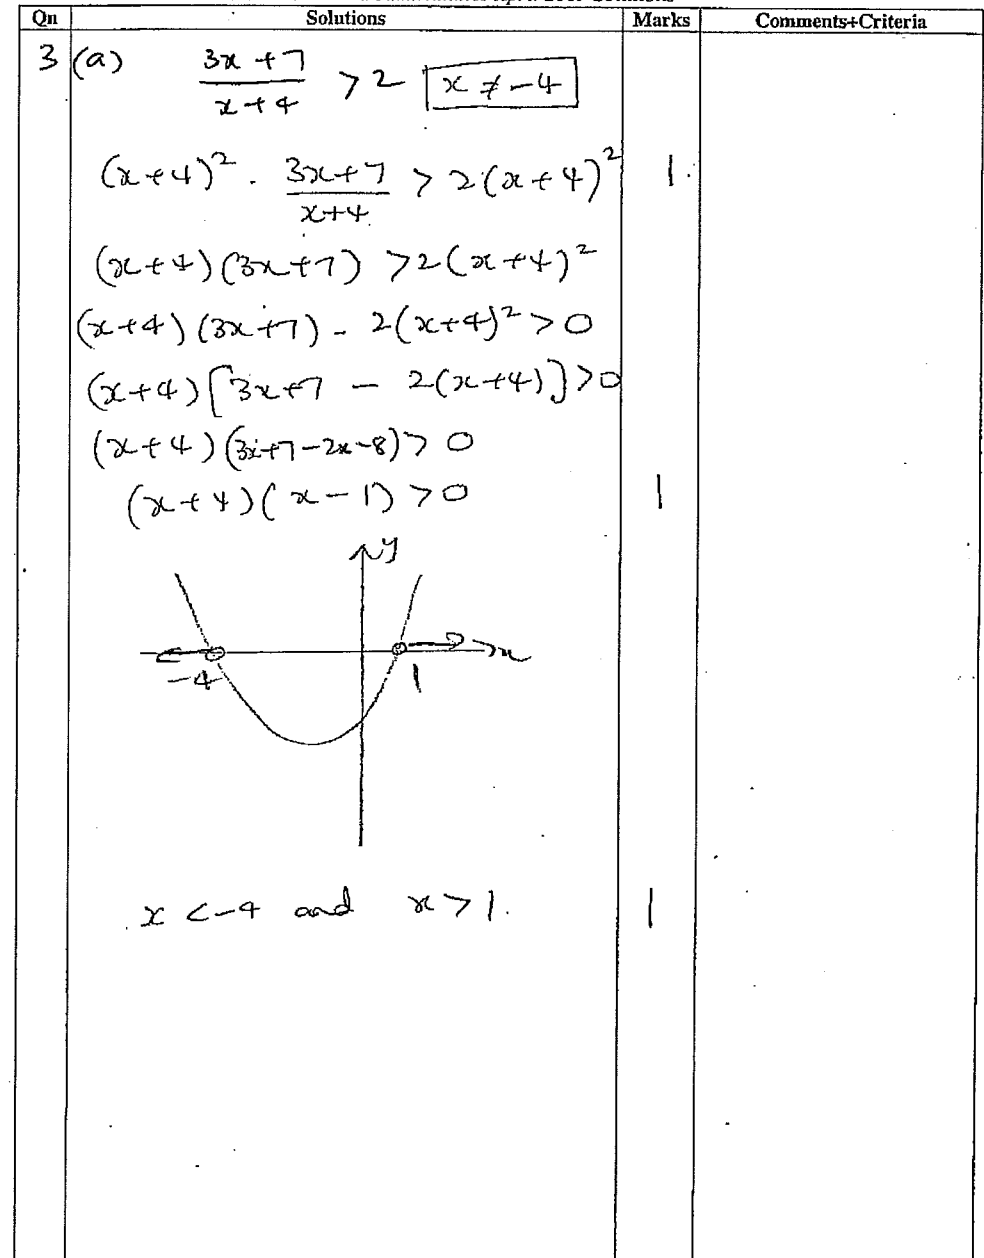 Qn Solutions Marks Comments+Criteria
3 (a) (3x+7)/(x+4) > 2 x ≠ -4
(x+4)² . (3x+7)/(x+4) > 2(x+4)² 1
(x+4)(3x+7) > 2(x+4)²
(x+4)(3x+7) - 2(x+4)² > 0
(x+4)[3x+7 - 2(x+4)] > 0
(x+4)(3x+7-2x-8) > 0
(x+4)(x-1) > 0 1
y
x
-4 1
x < -4 and x > 1. 1